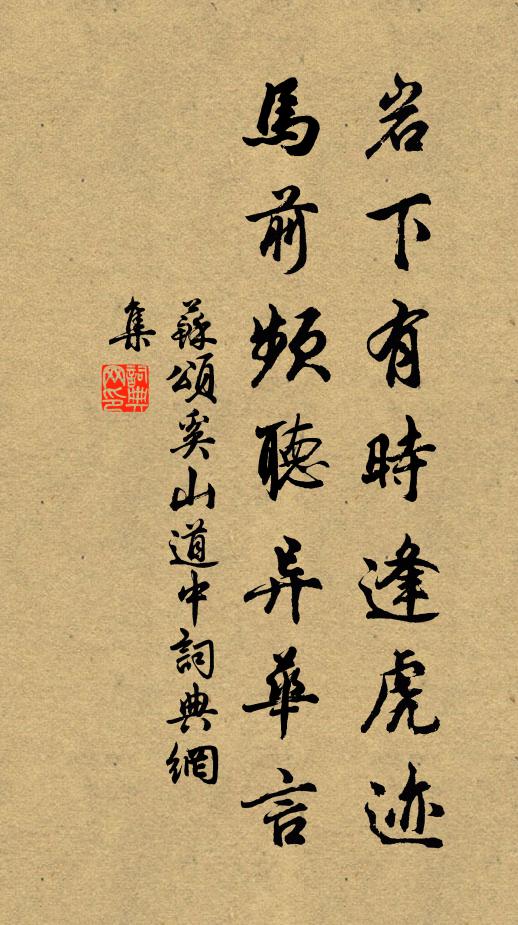 岩下有時逢虎迹
馬前頻聽异華言
蘇頌奚山道中詞典網
集
詞典網印